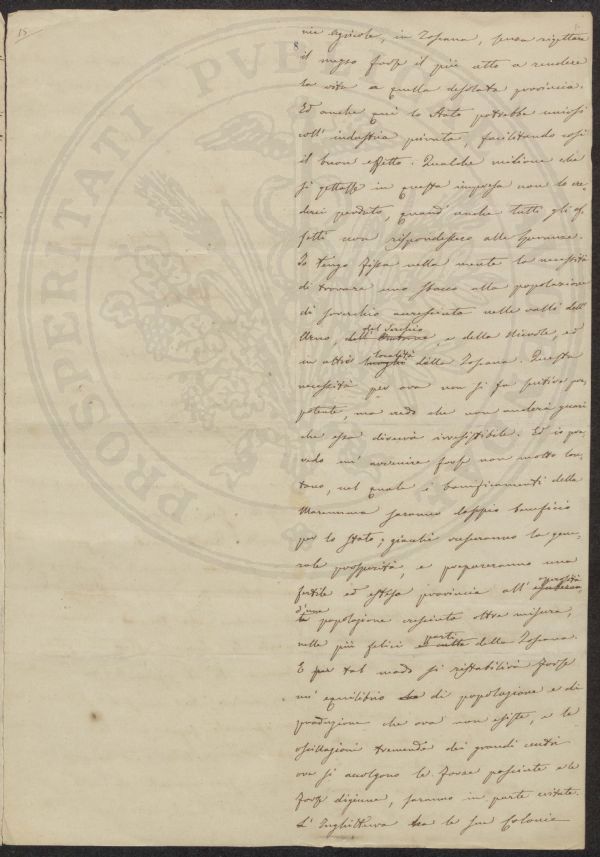 15
8
nie agricole, in Toscana, senza rigettare
il mezzo forse il più atto a rendere
la vita a quella desolata provincia.
Ed anche quì lo Stato potrebbe unirsi
coll' industria privata, facilitando così
il buon effetto. Qualche milione che
si gettasse in questa impresa non lo cre-
derei perduto, quand' anche tutti gli ef-
fetti non rispondessero alle speranze.
Io tengo fissa nella mente la necessità
di trovare uno sbocco alla popolazione
di soverchio accresciuta nelle valli dell'
del Serchio
Arno, dell' e della Nievole, ed
località
in altri luoghi della Toscana. Questa
necessità per ora non si fa sentire pre-
potente, ma credo che non anderà guari
che essa diverrà irresistibile. Ed io pre-
vedo un' avvenire forse non molto lon-
tano, nel quale i bonificamenti della
Maremma saranno doppio beneficio
per lo Stato; giacchè cresceranno la gene-
rale prosperità, e prepareranno una
operosità
fertile ed estesa provincia all'
d'una
la popolazione cresciuta oltre misura,
parti
nelle più felici della Toscana.
E per tal modo si ristabilirà forse
un' equilibrio di popolazione e di
produzione che ora non esiste, e le
oscillazioni tremende dei grandi centri
ove si accolgono le forze pasciute e le
forze digiune, saranno in parte evitate.
L' Inghilterra ha le sue Colonie
PROSPERITATI PVBLICAE